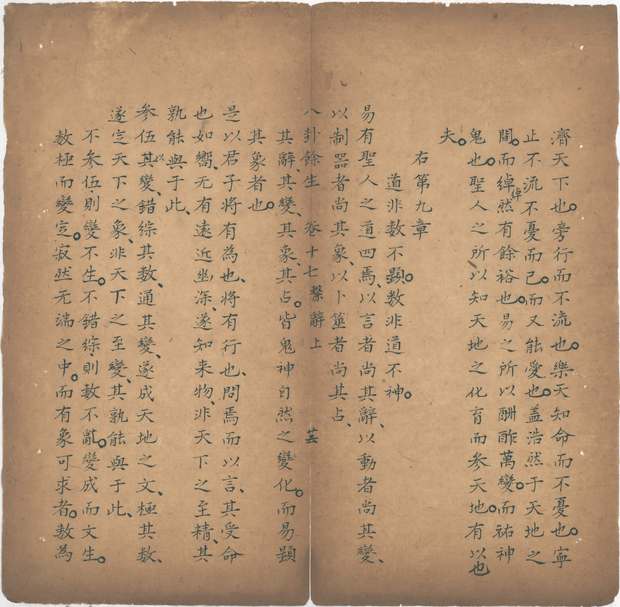 濟天下也旁行而不流也樂天知命而不憂也寧
止不流不憂而已而又能愛也蓋浩然于天地之
間而綽綽然有餘裕也易之所以酬酢萬變而祐神
鬼也聖人之所以知天地之化育而參天地有以也
夫
右第九章
道非數不顯數非道不神
易有聖人之道四焉以言者尚其辭以動者尚其變
以制器者尚其象以卜筮者尚其占
八卦餘生 卷十七繫辭上
其辭其變其象其占皆鬼神自然之變化而易顕
其象者也
是以君子將有為也將有行也問焉而以言其受命
也如嚮无有遠近幽深遂知來物非天下之至精其
孰能與于此
參伍以其變錯綜其數通其變遂成天地之文極其數
遂定天下之象非天下之至變其孰能與于此
不參伍則變不生不錯綜則數不亂變成而文生
數極而變定寂然无端之中而有象可求者數為